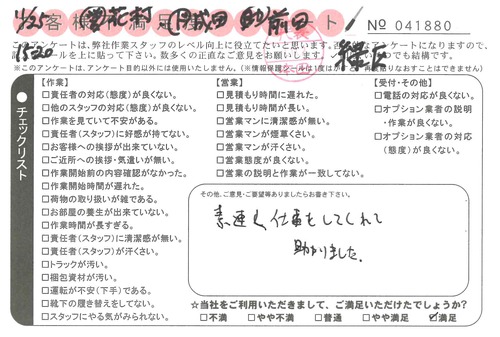 お客様満足度アンケート
№ 041880
1/25
1520
このアンケートは、弊社作業スタッフのレベル向上に役立てたいと思います。
数多くの正直なご意見をお願いします。
※このアンケートは、アンケート目的以外には使用いたしません。
チェックリスト
【作業】
□責任者の対応(態度)が良くない。
□他のスタッフの対応(態度)が良くない。
□作業を見ていて不安がある。
□責任者(スタッフ)に好感が持てない。
□お客様への挨拶が出来ていない。
□ご近所への挨拶・気遣いが無い。
□作業開始前の内容確認がなかった。
□作業開始時間が遅れた。
□荷物の取り扱いが雑である。
□お部屋の養生が出来ていない。
□作業時間が長すぎる。
□責任者(スタッフ)に清潔感が無い。
□責任者(スタッフ)が汗くさい。
□トラックが汚い。
□梱包資材が汚い。
□運転が不安(下手)である。
□靴下の履き替えをしてない。
□スタッフにやる気がみられない。
【営業】
□見積もり時間に遅れた。
□見積もり時間が長い。
□営業マンに清潔感が無い。
□営業マンが煙草くさい。
□営業マンが汗くさい。
□営業態度が良くない。
□営業の説明と作業が一致してない。
【受付・その他】
□電話の対応が良くない。
□オプション業者の説明・作業が良くない。
□オプション業者の対応(態度)が良くない。
その他、ご意見・ご要望等ありましたらお書き下さい。
素速く仕事をしてくれて
助かりました。
☆当社をご利用いただきまして、ご満足いただけたでしょうか?
□不満 □やや不満 □普通 □やや満足 ☑満足